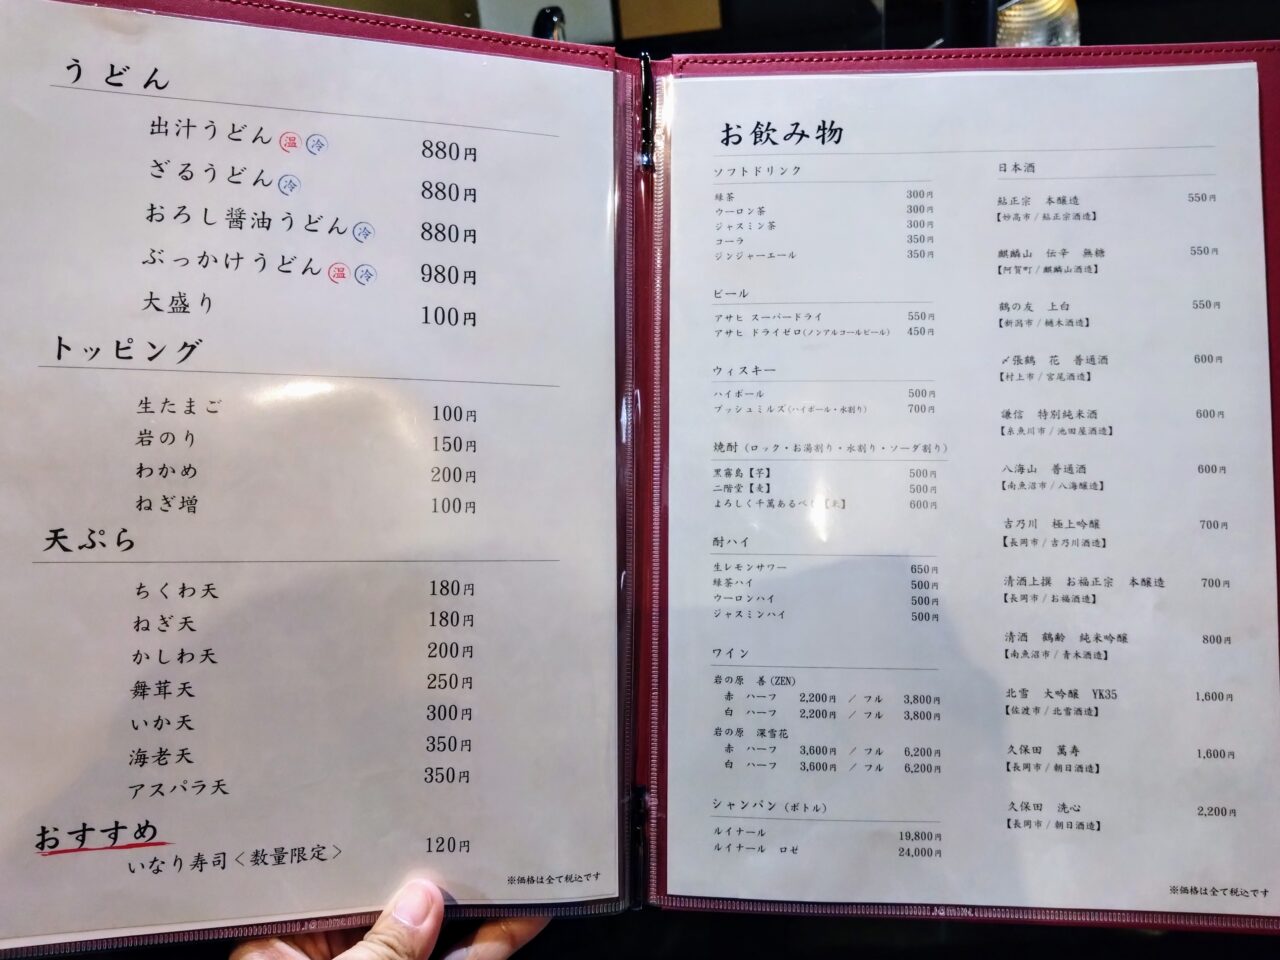 うどん
出汁うどん 温 冷 880円
ざるうどん 冷 880円
おろし醤油うどん 冷 880円
ぶっかけうどん 温 冷 980円
大盛り 100円
トッピング
生たまご 100円
岩のり 150円
わかめ 200円
ねぎ増 100円
天ぷら
ちくわ天 180円
ねぎ天 180円
かしわ天 200円
舞茸天 250円
いか天 300円
海老天 350円
アスパラ天 350円
おすすめ
いなり寿司＜数量限定＞ 120円
※価格は全て税込です
お飲み物
ソフトドリンク
緑茶 300円
ウーロン茶 300円
ジャスミン茶 300円
コーラ 350円
ジンジャーエール 350円
ビール
アサヒ スーパードライ 550円
アサヒ ドライゼロ(ノンアルコールビール) 450円
ウィスキー
ハイボール 500円
ブッシュミルズ(ハイボール・水割り) 700円
焼酎（ロック・お湯割り・水割り・ソーダ割り）
黒霧島【芋】 500円
二階堂【麦】 500円
よろしく千萬あるべし【米】 600円
酎ハイ
生レモンサワー 650円
緑茶ハイ 500円
ウーロンハイ 500円
ジャスミンハイ 500円
ワイン
岩の原 善(ZEN)
赤 ハーフ 2,200円 ／フル 3,800円
白 ハーフ 2,200円 ／フル 3,800円
岩の原 深雪花
赤 ハーフ 3,600円 ／フル 6,200円
白 ハーフ 3,600円 ／フル 6,200円
シャンパン（ボトル）
ルイナール 19,800円
ルイナール ロゼ 24,000円
日本酒
鮎正宗 本醸造 550円
【妙高市/鮎正宗酒造】
麒麟山 伝辛 無糖 550円
【阿賀町/麒麟山酒造】
鶴の友 上白 550円
【新潟市/樋木酒造】
〆張鶴 花 普通酒 600円
【村上市/宮尾酒造】
謙信 特別純米酒 600円
【糸魚川市/池田屋酒造】
八海山 普通酒 600円
【南魚沼市/八海醸造】
吉乃川 極上吟醸 700円
【長岡市/吉乃川酒造】
清酒上撰 お福正宗 本醸造 700円
【長岡市/お福酒造】
清酒 鶴齢 純米吟醸 800円
【南魚沼市/青木酒造】
北雪 大吟醸 YK35 1,600円
【佐渡市/北雪酒造】
久保田 萬寿 1,600円
【長岡市/朝日酒造】
久保田 洗心 2,200円
【長岡市/朝日酒造】
※価格は全て税込です